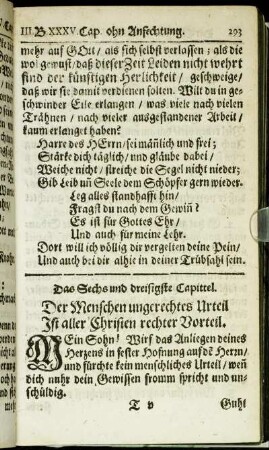 III. B XXXV. Cap. ohn Anfechtung. 293
mehr auf GOtt / als sich selbst verlassen; als die
wol gewust / daß dieser Zeit Leiden nicht wehrt
sind der künftigen Herlichkeit / geschweige /
daß wir sie damit verdienen solten. Wilt du in ge-
schwinder Eile erlangen / was viele nach vielen
Trähnen / nach vieler ausgestandener Arbeit /
kaum erlanget haben?
Harre des HErrn / sei mäñlich und frei;
Stärke dich täglich / und gläube dabei /
Weiche nicht / streiche die Segel nicht nieder;
Gib Leib uñ Seele dem Schöpfer gern wieder.
Leg alles standhafft hin /
Fragst du nach dem Gewiñ?
Es ist für Gottes Ehr /
Und auch für meine Lehr.
Dort will ich völlig dir vergelten deine Pein /
Und auch bei dir alhie in deiner Trübsahl sein.
Das Sechs und dreisigste Capittel.
Der Menschen ungerechtes Urteil
Ist aller Christen rechter Vorteil.
MEin Sohn! Wirf das Anliegen deines
Herzens in fester Hofnung auf dē Herrn /
und fürchte kein menschliches Urteil / weñ
dich nuhr dein Gewissen fromm spricht und un-
schüldig.
T v Guht